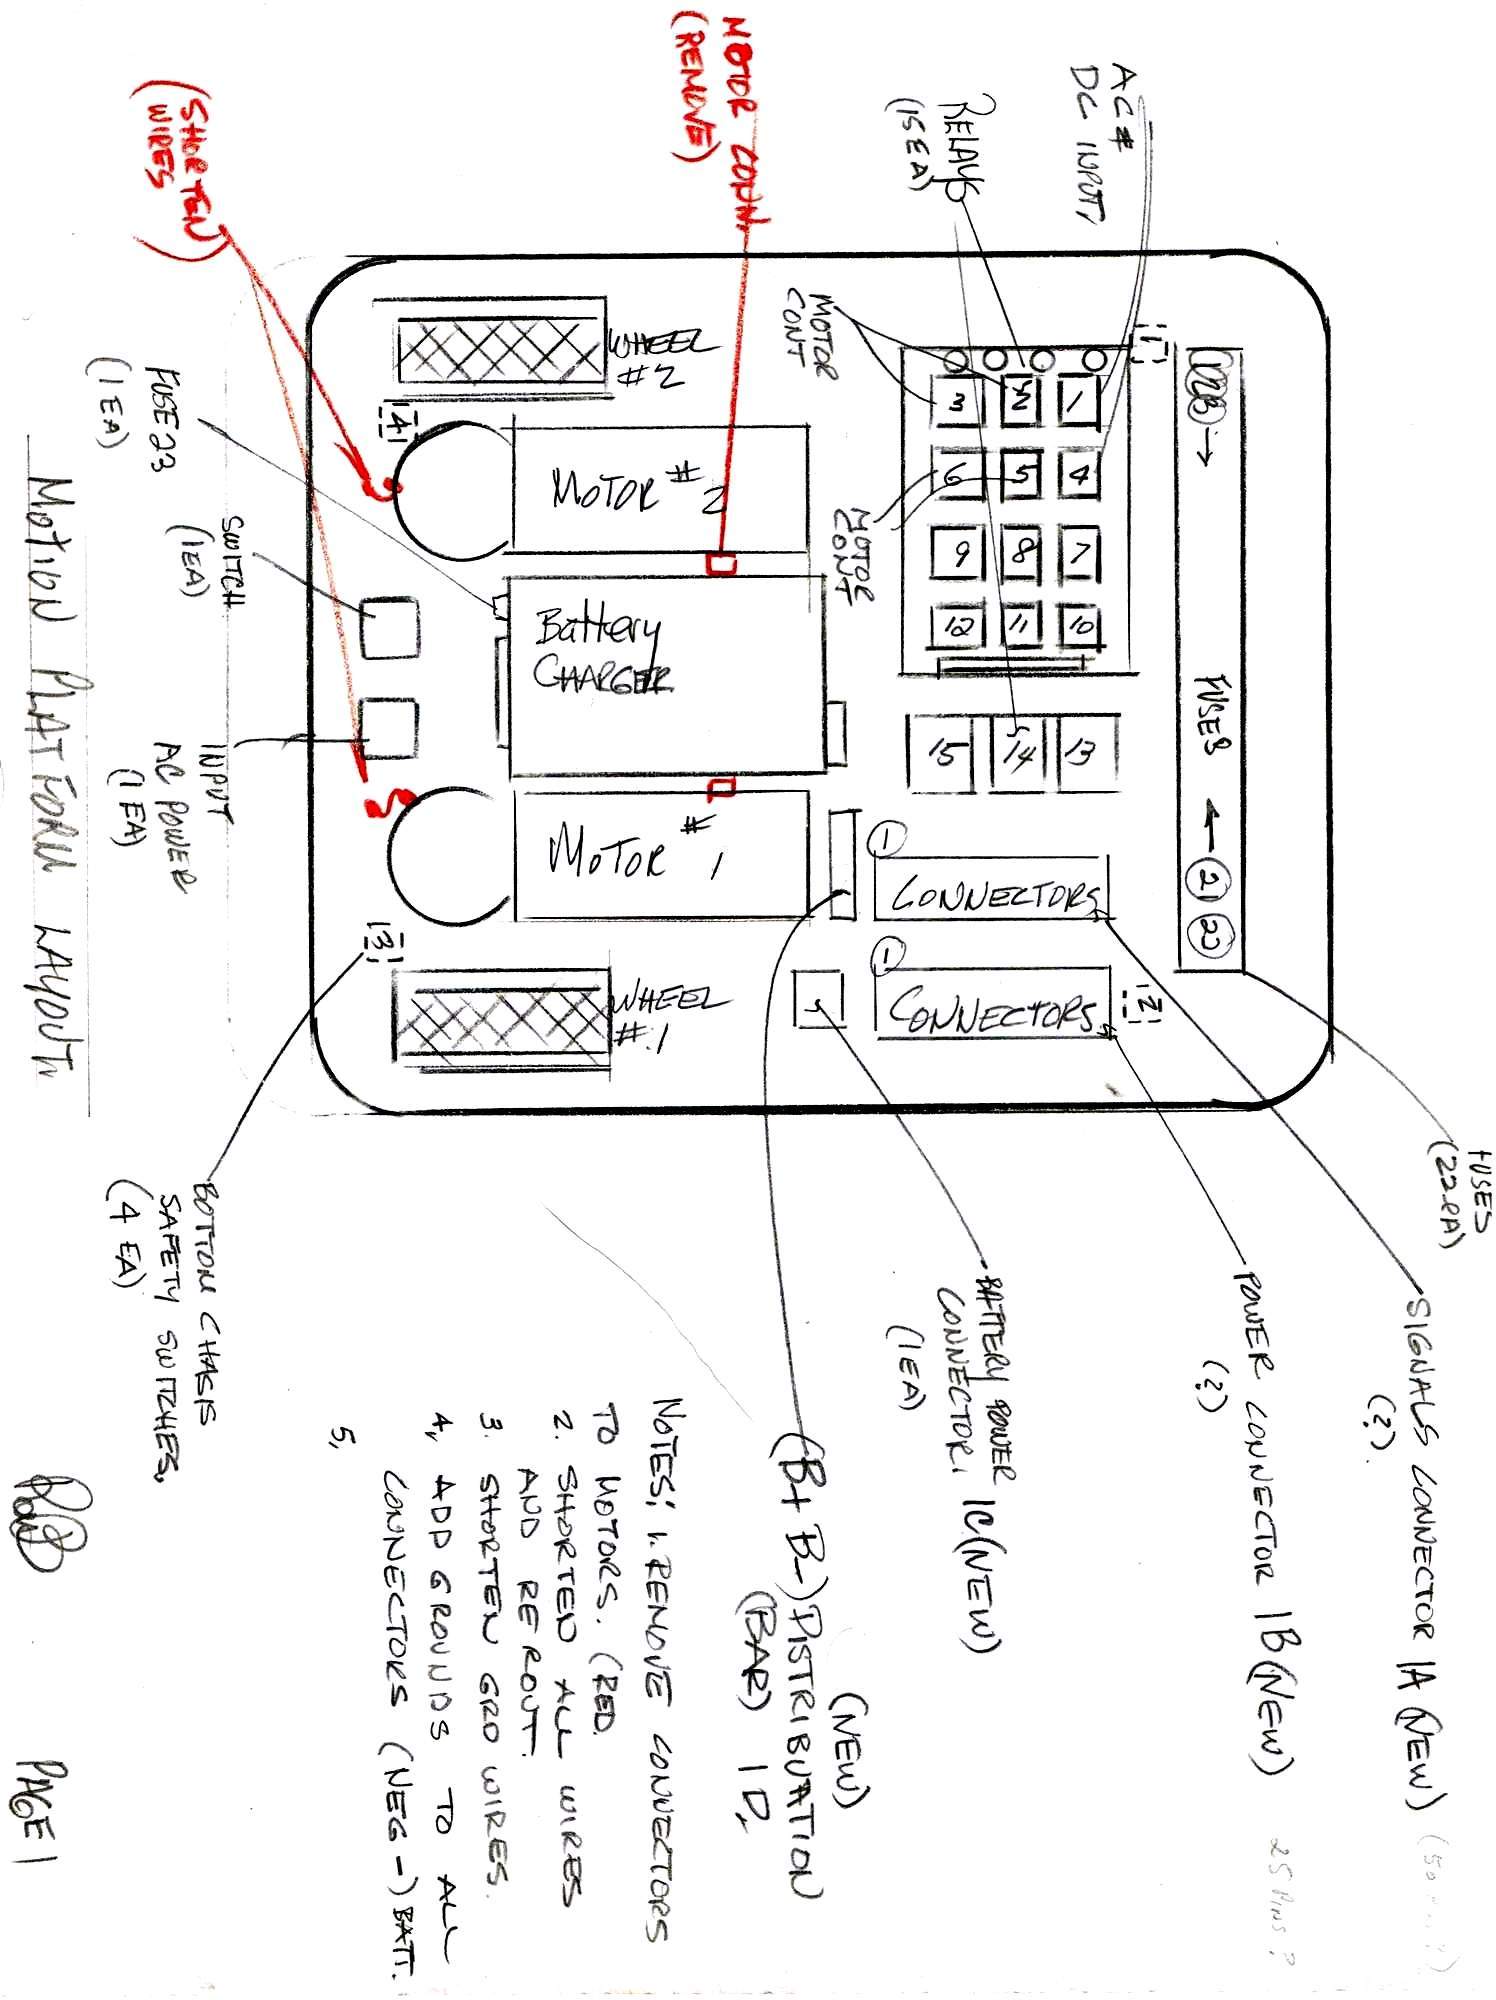 FUSES
(22EA)
SIGNALS CONNECTOR 1A (NEW)
(?)
POWER CONNECTOR 1B (NEW)
(?)
25 PINS?
BATTERY POWER
CONNECTOR. 1C (NEW)
(1EA)
(NEW)
(B+ B-) DISTRIBUATION
(BAR) 1D.
AC &
DC INPUT,
RELAYS
(15EA)
MOTOR CONN
(REMOVE)
(SHORTEN
WIRES)
1
2
3
4
FUSES
21
22
MOTOR
CONT
MOTOR
CONT
1
2
3
4
5
6
7
8
9
10
11
12
13
14
15
1
CONNECTORS
1
CONNECTORS
WHEEL
#2
MOTOR #2
Battery
CHARGER
MOTOR #1
WHEEL
#1
FUSE 23
(1EA)
SWITCH
(1EA)
INPUT
AC POWER
(1EA)
BOTTOM CHASIS
SAFETY SWITCHES.
(4 EA)
NOTES: 1. REMOVE CONNECTORS
TO MOTORS. (RED
2. SHORTED ALL WIRES
AND REROUT.
3. SHORTEN GRD WIRES.
4. ADD GROUNDS TO ALL
CONNECTORS (NEG -) BATT.
5,
MOTION PLATFORM LAYOUT
PAGE 1